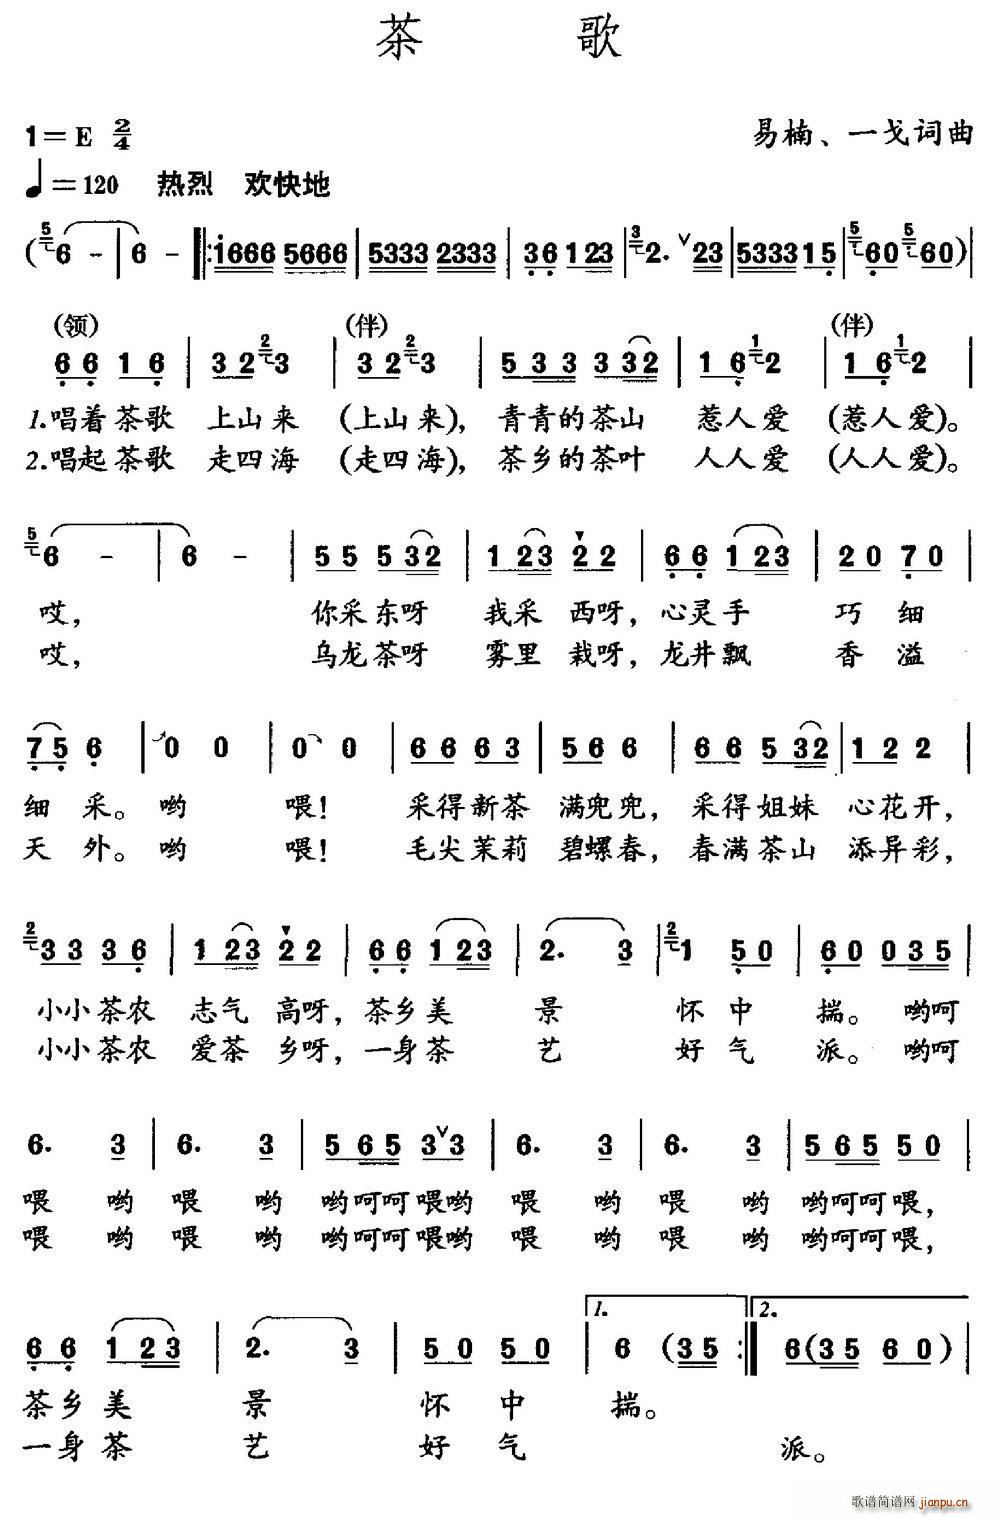 茶 歌
1=E 2/4
易楠、一戈词曲
♩=120 热烈 欢快地
( 5 6 - | 6 - |: i666 5666 | 5333 2333 | 36 1 23 | 3 2. ∨ 23 | 5333 15 | 5 60 5 60 ) |
(领) (伴) (伴)
66 16 | 32 2 3 | 32 2 3 | 533 332 | 16 1 2 | 16 1 2 |
1.唱着茶歌 上山来 (上山来), 青青的茶山 惹人爱 (惹人爱)。
2.唱起茶歌 走四海 (走四海), 茶乡的茶叶 人人爱 (人人爱)。
5 6 - | 6 - | 55 532 | 123 22 | 66 123 | 20 70 |
哎, 你采东呀 我采 西呀, 心灵手 巧 细
哎, 乌龙茶呀 雾里 栽呀, 龙井飘 香 溢
75 6 | 0 0 | 0 0 | 66 63 | 56 6 | 66 532 | 12 2 |
细 采。 哟 喂! 采得新茶 满兜兜, 采得姐妹 心花开,
天 外。 哟 喂! 毛尖茉莉 碧螺春, 春满茶山 添异彩,
2 33 36 | 123 22 | 66 123 | 2. 3 | 2 1 50 | 60 035 |
小小茶农 志气 高呀, 茶乡美 景 怀 中 揣。 哟呵
小小茶农 爱茶 乡呀, 一身茶 艺 好 气 派。 哟呵
6. 3 | 6. 3 | 565 3∨3 | 6. 3 | 6. 3 | 565 50 |
喂 哟 喂 哟 哟呵呵喂哟 喂 哟 喂 哟 哟呵呵喂,
喂 哟 喂 哟 哟呵呵喂哟 喂 哟 喂 哟 哟呵呵喂,
1. 2.
66 123 | 2. 3 | 50 50 | 6 (35 :| 6(35 60) |
茶乡美 景 怀 中 揣。
一身茶 艺 好 气 派。
歌谱简谱网 jianpu.cn